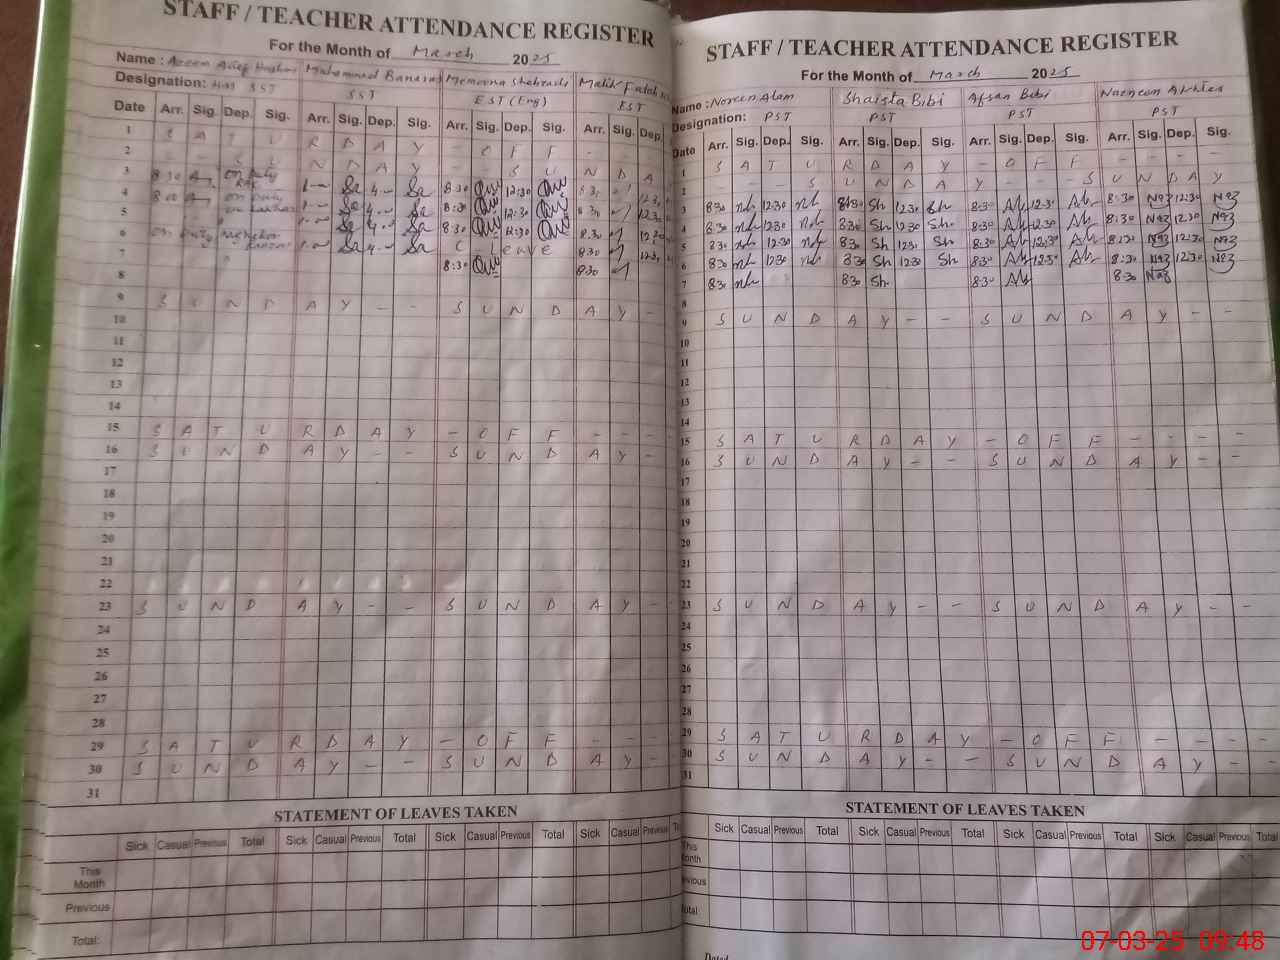 STAFF / TEACHER ATTENDANCE REGISTER
For the Month of March 2025
Name : Azeem Muhammad Banaras Memoona Shehzadi Malik Fatah
Designation: SST SST EST (Eng) EST
Date Arr. Sig. Dep. Sig. Arr. Sig. Dep. Sig. Arr. Sig. Dep. Sig. Arr. Sig. Dep.
1 S A T U R D A Y - O F F - -
2 - - S U N D A Y - - S U N D A
3 8:30 on duty 8:30 12:30 8:30 12:30
4 8:00 on duty 8:30 12:30 8:30 12:30
5 8:30 12:30 8:30 12:30
6 on duty C Leave 8:30 12:30
7 8:30 8:30
8
9 S U N D A Y - - S U N D A Y -
10
11
12
13
14
15 S A T U R D A Y - O F F - - -
16 S U N D A Y - - S U N D A Y -
17
18
19
20
21
22
23 S U N D A Y - - S U N D A Y - -
24
25
26
27
28
29 S A T U R D A Y - O F F - - -
30 S U N D A Y - - S U N D A Y -
31
STATEMENT OF LEAVES TAKEN
Sick Casual Previous Total Sick Casual Previous Total Sick Casual Previous Total Sick Casual Previous
This Month
Previous
Total:
STAFF / TEACHER ATTENDANCE REGISTER
For the Month of March 2025
Name : Noreen Alam Shaista Bibi Afsan Bibi Nazneen Akhtar
Designation: PST PST PST PST
Date Arr. Sig. Dep. Sig. Arr. Sig. Dep. Sig. Arr. Sig. Dep. Sig. Arr. Sig. Dep. Sig.
1 S A T U R D A Y - O F F - - - -
2 - - - S U N D A Y - - S U N D A Y
3 8:30 nh 12:30 nh 8:30 Sh 12:30 Sh 8:30 Ab 12:30 Ab 8:30 Naz 12:30 Naz
4 8:30 nh 12:30 nh 8:30 Sh 12:30 Sh 8:30 Ab 12:30 Ab 8:30 Naz 12:30 Naz
5 8:30 nh 12:30 nh 8:30 Sh 12:30 Sh 8:30 Ab 12:30 Ab 8:30 Naz 12:30 Naz
6 8:30 nh 12:30 nh 8:30 Sh 12:30 Sh 8:30 Ab 12:30 Ab 8:30 Naz 12:30 Naz
7 8:30 nh 8:30 Sh 8:30 Ab 8:30 Naz
8
9 S U N D A Y - - S U N D A Y - -
10
11
12
13
14
15 S A T U R D A Y - O F F - - - -
16 S U N D A Y - - S U N D A Y - -
17
18
19
20
21
22
23 S U N D A Y - - S U N D A Y - -
24
25
26
27
28
29 S A T U R D A Y - O F F - - - -
30 S U N D A Y - - S U N D A Y - -
31
STATEMENT OF LEAVES TAKEN
Sick Casual Previous Total Sick Casual Previous Total Sick Casual Previous Total Sick Casual Previous Total
This
07-03-25 09:48